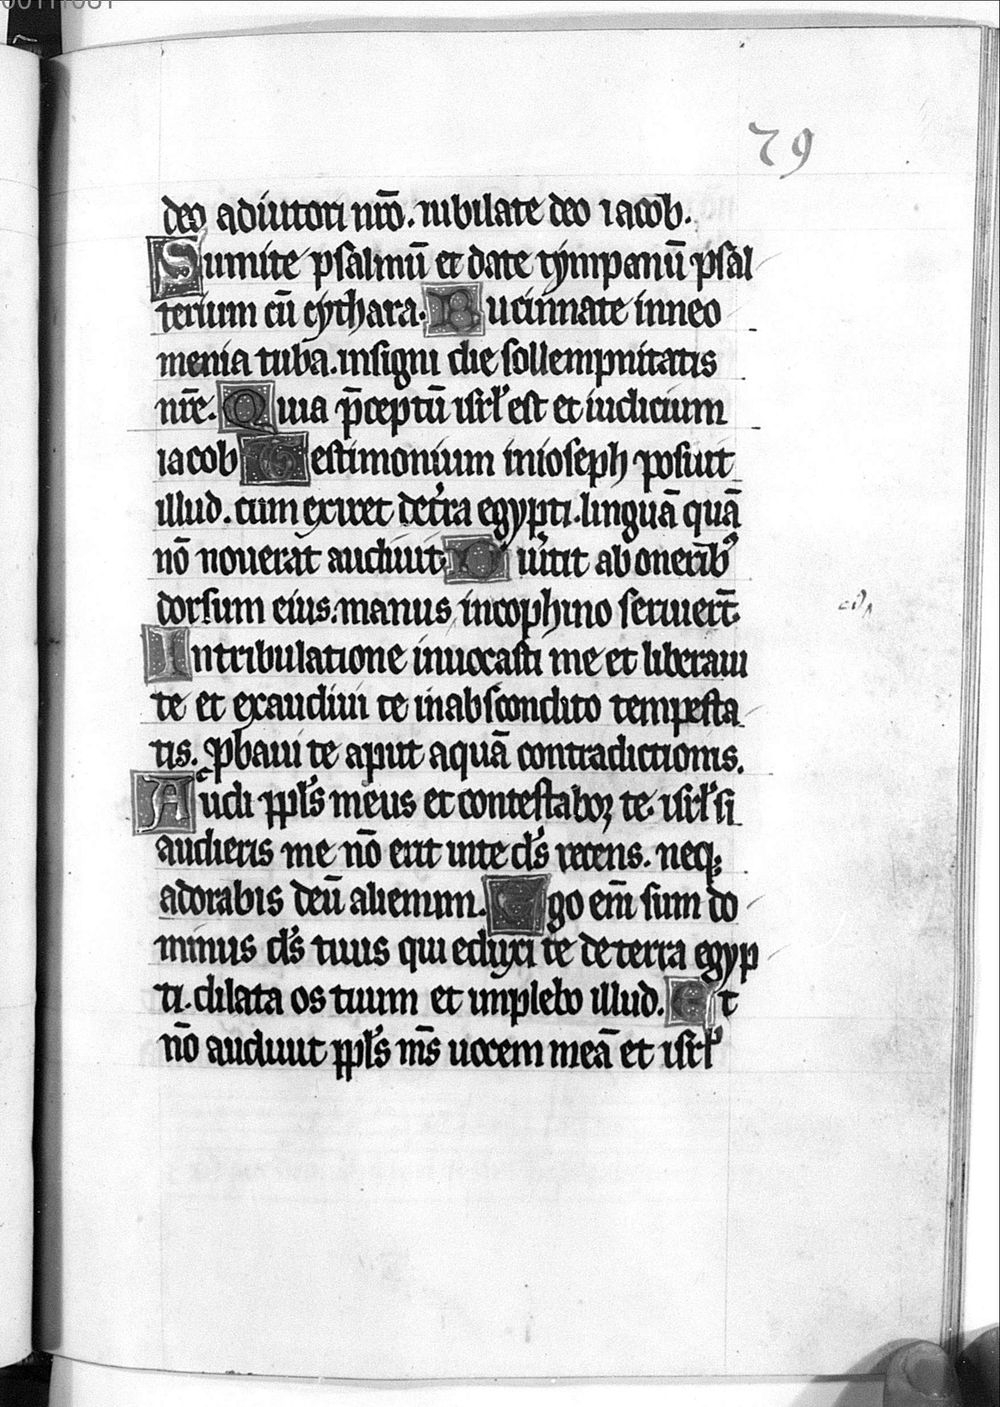 79
deo adiutori nr̄o. iubilate deo iacob.
Sumite psalmū et date tympanū psal
terium cū cythara. Bucinnate in neo
menia tuba. insigni die sollempnitatis
nr̄e. Quia p̄ceptū isrl̕ est et iudicium
iacob Testimonium in ioseph posuit
illud. cum exiret de tr̕ra egypti. linguā quā
nō nouerat audiuit Diu̕tit ab onerib̕
dorsum eius. manus in cophino seruiert̄.
In tribulatione inuocasti me et liberaui
te et exaudiui te in abscondito tempesta
tis. ꝓbaui te aput aquā contradictionis.
Audi ppl̕s meus et contestaboꝛ te. isrl̕ si
audieris me nō erit in te ds̕ recens. neqꝫ
adorabis deū alienum. Ego em̄ sum do
minus ds̕ tuus qui eduxi te de terra egyp
ti. dilata os tuum et implebo illud. Et
nō audiuit ppl̕s ms̄ uocem meā et isrl̕